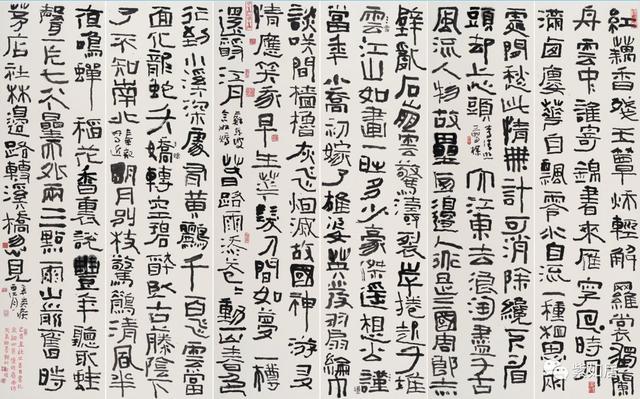 紅藕香殘玉簟秋輕解羅裳獨蘭
舟雲中誰寄錦書來雁字回時月
滿西樓花自飄零水自流一種相思兩
處閒愁此情無計可消除纔下眉
頭却上心頭 李清照 一剪梅 大江東去浪淘盡千古
風流人物故壘西邊人道是三國周郎赤
壁亂石崩雲驚濤裂岸捲起千堆
雪江山如畫一時多少豪傑遙想公瑾
當年小喬初嫁了雄姿英發羽扇綸巾
談笑間檣櫓灰飛烟滅故國神游多
情應笑我早生華髮人間如夢一樽
還酹江月 蘇東坡 念奴嬌 春路雨添花花動一山春色
行到小溪深處有黃鸝千百飛雲當
面化龍蛇夭矯轉空碧醉臥古藤陰下
了不知南北 秦觀 好事近 明月別枝驚鵲清風半
夜鳴蟬稻花香裏說豐年聽取蛙
聲一片七八个星天外兩三點雨山前舊時
茅店社林邊路轉溪橋忽見 辛棄疾 西江月